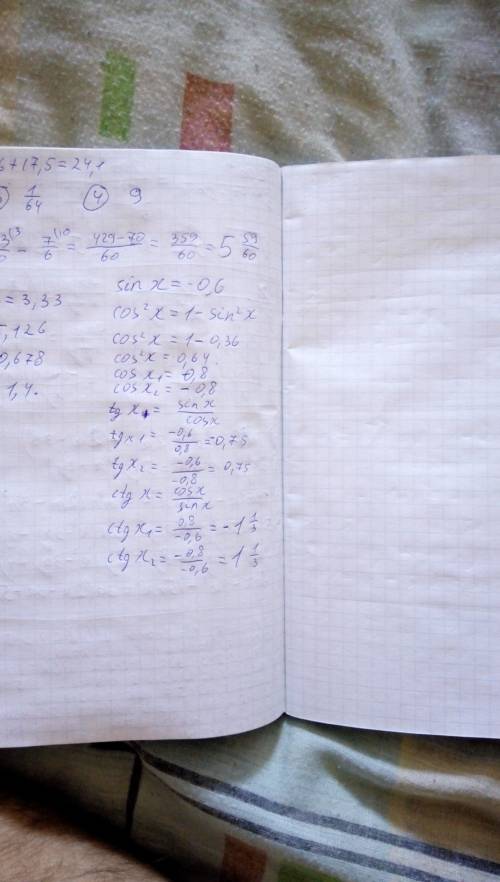 6+17,5=24,1
1/64 ④ 9
- 7/6 = (429-70)/60 = 359/60 = 5 59/60
sin x = -0,6
= 3,33
cos²x = 1 - sin²x
,126
cos²x = 1 - 0,36
0,678
cos²x = 0,64.
cos x₁ = 0,8
1,4.
cos x₂ = -0,8
tg x = sin x/cos x
tg x₁ = -0,6/0,8 = 0,75
tg x₂ = -0,6/-0,8 = 0,75
ctg x = cos x/sin x
ctg x₁ = 0,8/-0,6 = -1 1/3
ctg x₂ = -0,8/-0,6 = 1 1/3